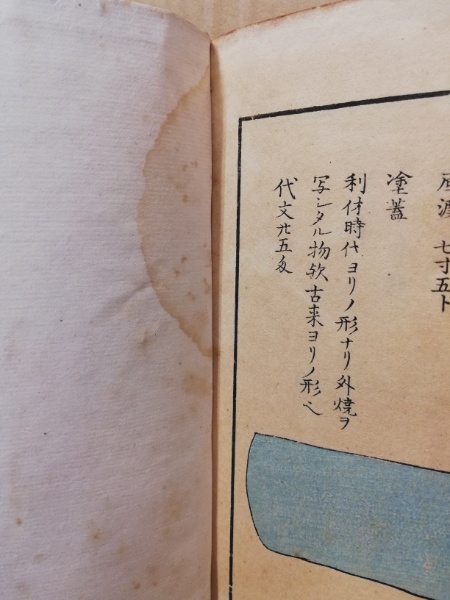 渡 七寸五ト
塗蓋
利休時代ヨリノ形ナリ外焼ヲ
写シタル物欤古来ヨリノ形也
代文廿五匁